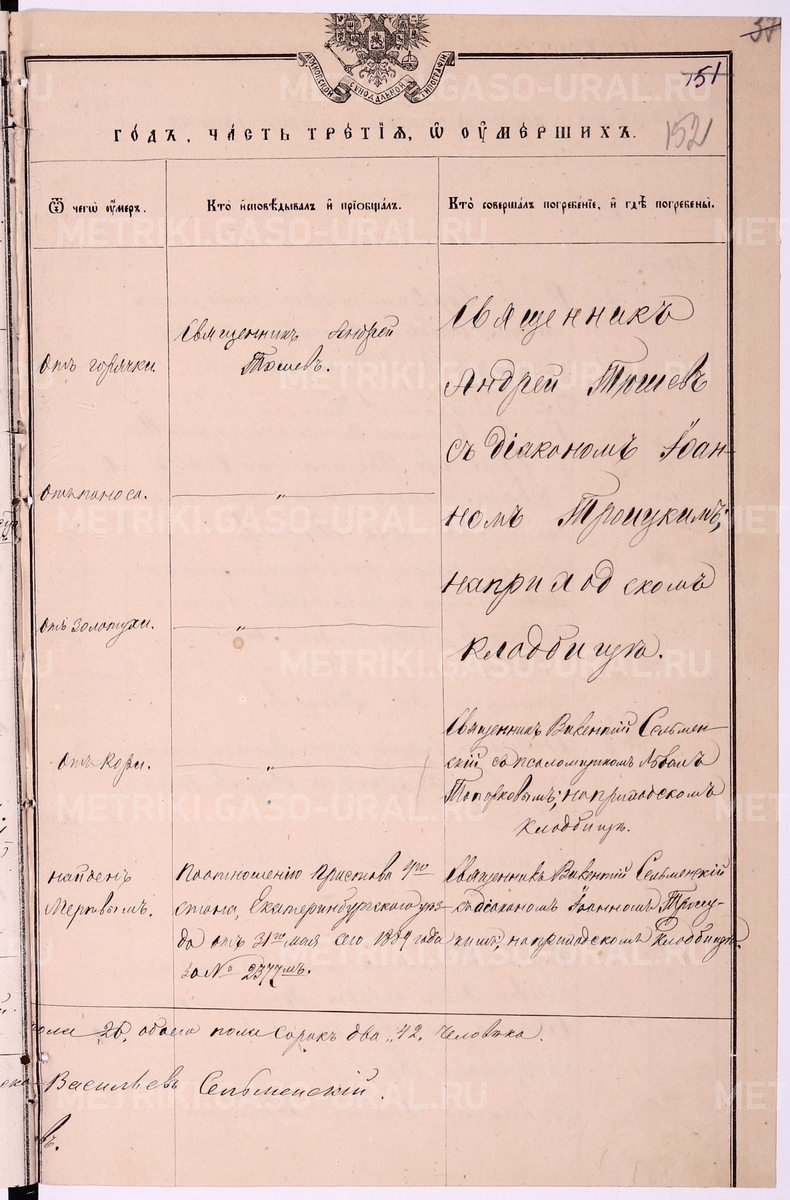 37
151
152
МОСКОВСКОЙ СѴНОДАЛЬНОЙ ТИПОГРАФІИ
го́дъ, ча́сть тре́тїѧ, ѡ҆ ᲂу҆ме́ршихъ.
Ѿ чегѡ̀ ᲂу҆́меръ.
Кто̀ и҆сповѣ́дывалъ и҆ прїѡбща́лъ.
Кто̀ соверша́лъ погребе́нїе, и҆ гдѣ̀ погребены̀.
отъ горячки
Священникъ Андрей
Тошевъ.
Священникъ
Андрей Тошевъ
съ діакономъ Іоан-
номъ Троицкимъ;
на приходскомъ
кладбищѣ.
отъ поноса.
"
отъ золотухи.
"
отъ кори.
"
Священникъ Викентій Сельмен-
скій съ псаломщикомъ
Топорковымъ; на приходскомъ
кладбищѣ.
найденъ
мертвымъ.
По отношенію Пристава
стана, Екатеринбургскаго уѣз-
да отъ 31го мая сего 1889 года
за № 2377мъ.
Священникъ Викентій Сельменскій
съ діакономъ Іоанномъ Троиц-
кимъ; на приходскомъ кладбищѣ.
пола 26, обоего пола сорокъ два „42„ человѣка.
Васильевъ Сельменскій.
въ.
METRIKI.GASO-URAL.RU